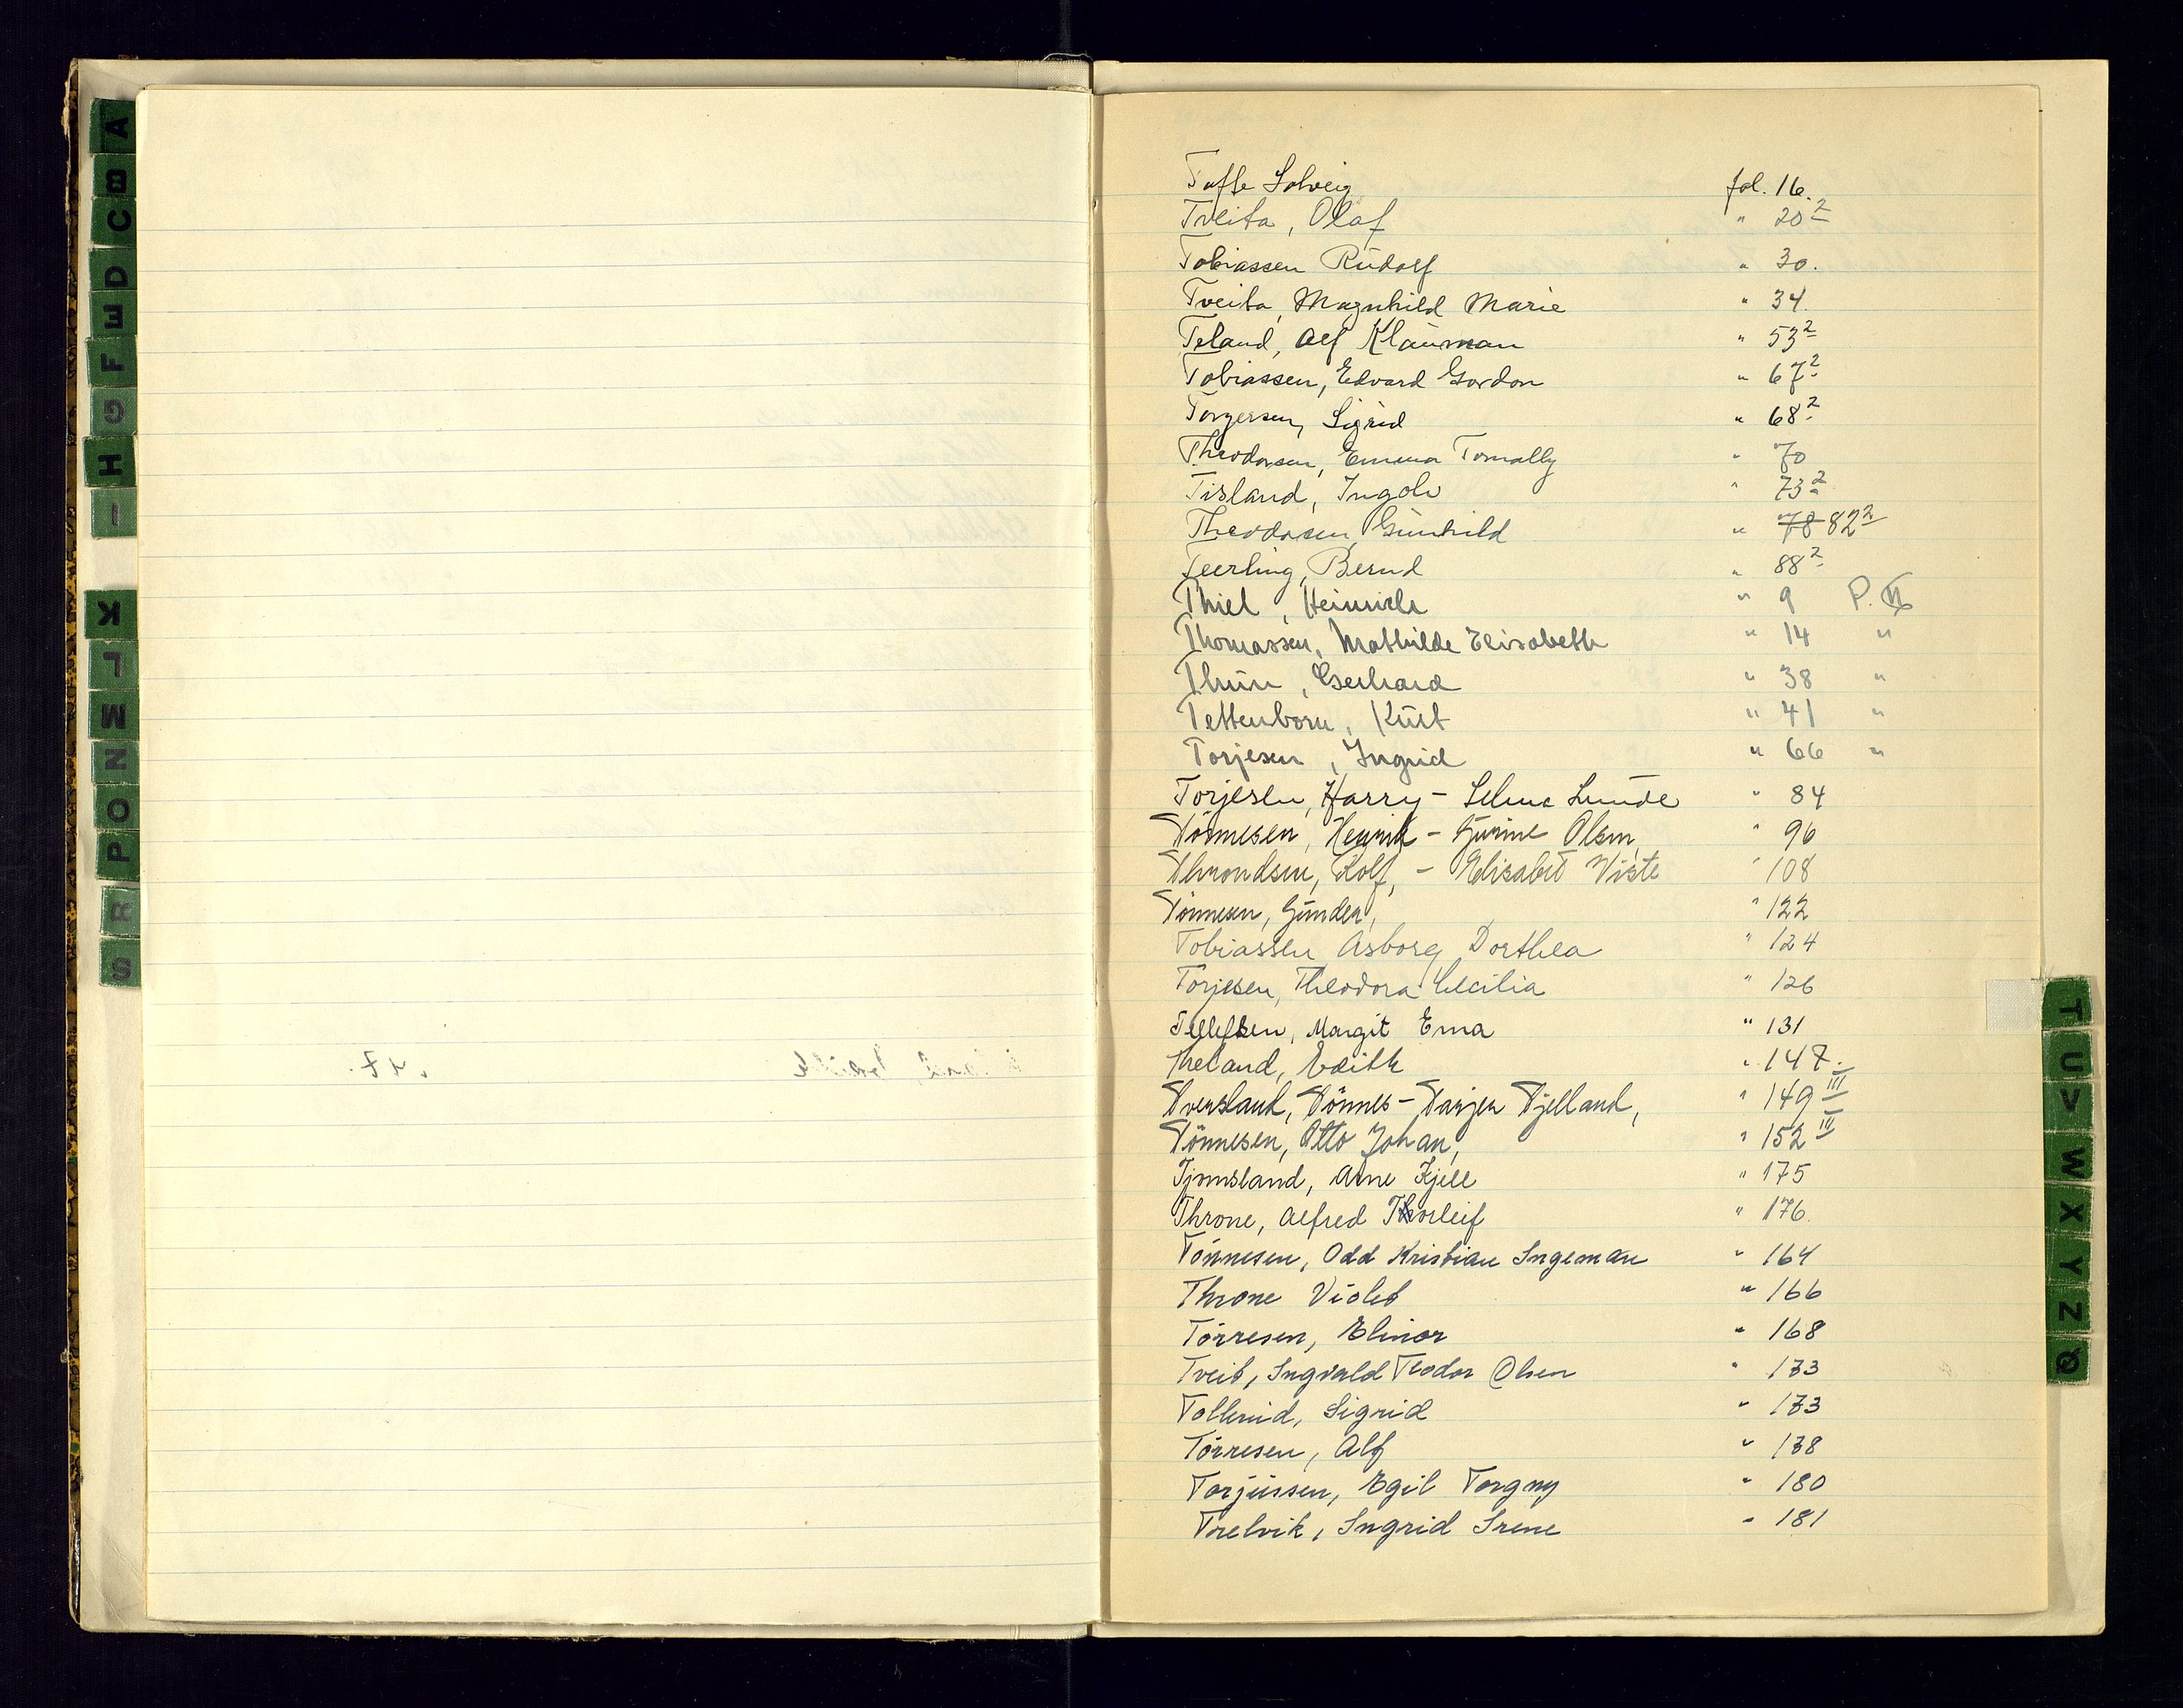 A
B
C
D
E
F
G
H
I
K
L
M
N
O
P
R
S
Tufte Solveig fol. 16.
Tveita, Olaf " 20 2
Tobiassen Rudolf " 30.
Tveita, Magnhild Marie " 34.
Teland, Alf Klaúman " 53 2
Tobiassen, Edvard Gordon " 67 2
Torgersen, Sigrid " 68 2
Theodorsen, Emma Tomally " 70
Tisland, Ingolv " 73 2
Theodorsen, Gunhild " 78 82 2
Teerling, Bernd " 88 2
Thiel, Heinrich " 9 P. II
Thomassen, Mathilde Elisabeth " 14 "
Thün, Gerhard " 38 "
Tettenborn, Kurt " 41 "
Torjesen, Ingrid " 66 "
Torjesen, Harry - Selma Lunde " 84
Tönnesen, Henrik - Gurine Olsen, " 96
Thmondsen, Rolf, - Elisabet Viste " 108
Tönnesen, Gunder, " 122
Tobiassen Asborg Dorthea " 124
Torjesen, Theodora Cecilia " 126
Tellefsen, Margit Erna " 131
Theland, Edith " 147.
Tversland, Tönnes - Tarjer Tjelland, " 149 III
Tönnesen, Otto Johan, " 152 III
Tjomsland, Arne Kjell " 175
Throne, Alfred Thorleif " 176.
Tönnesen, Odd Kristian Ingeman " 164
Throne Violet " 166
Törresen, Elinor " 168
Tveit, Ingvald Teodor Olsen " 173
Tolknid, Sigrid " 173
Törresen, Alf " 178
Torjussen, Egil Torgny " 180
Trelvik, Ingrid Irene " 181
T
U
V
W
X
Y
Z
Q